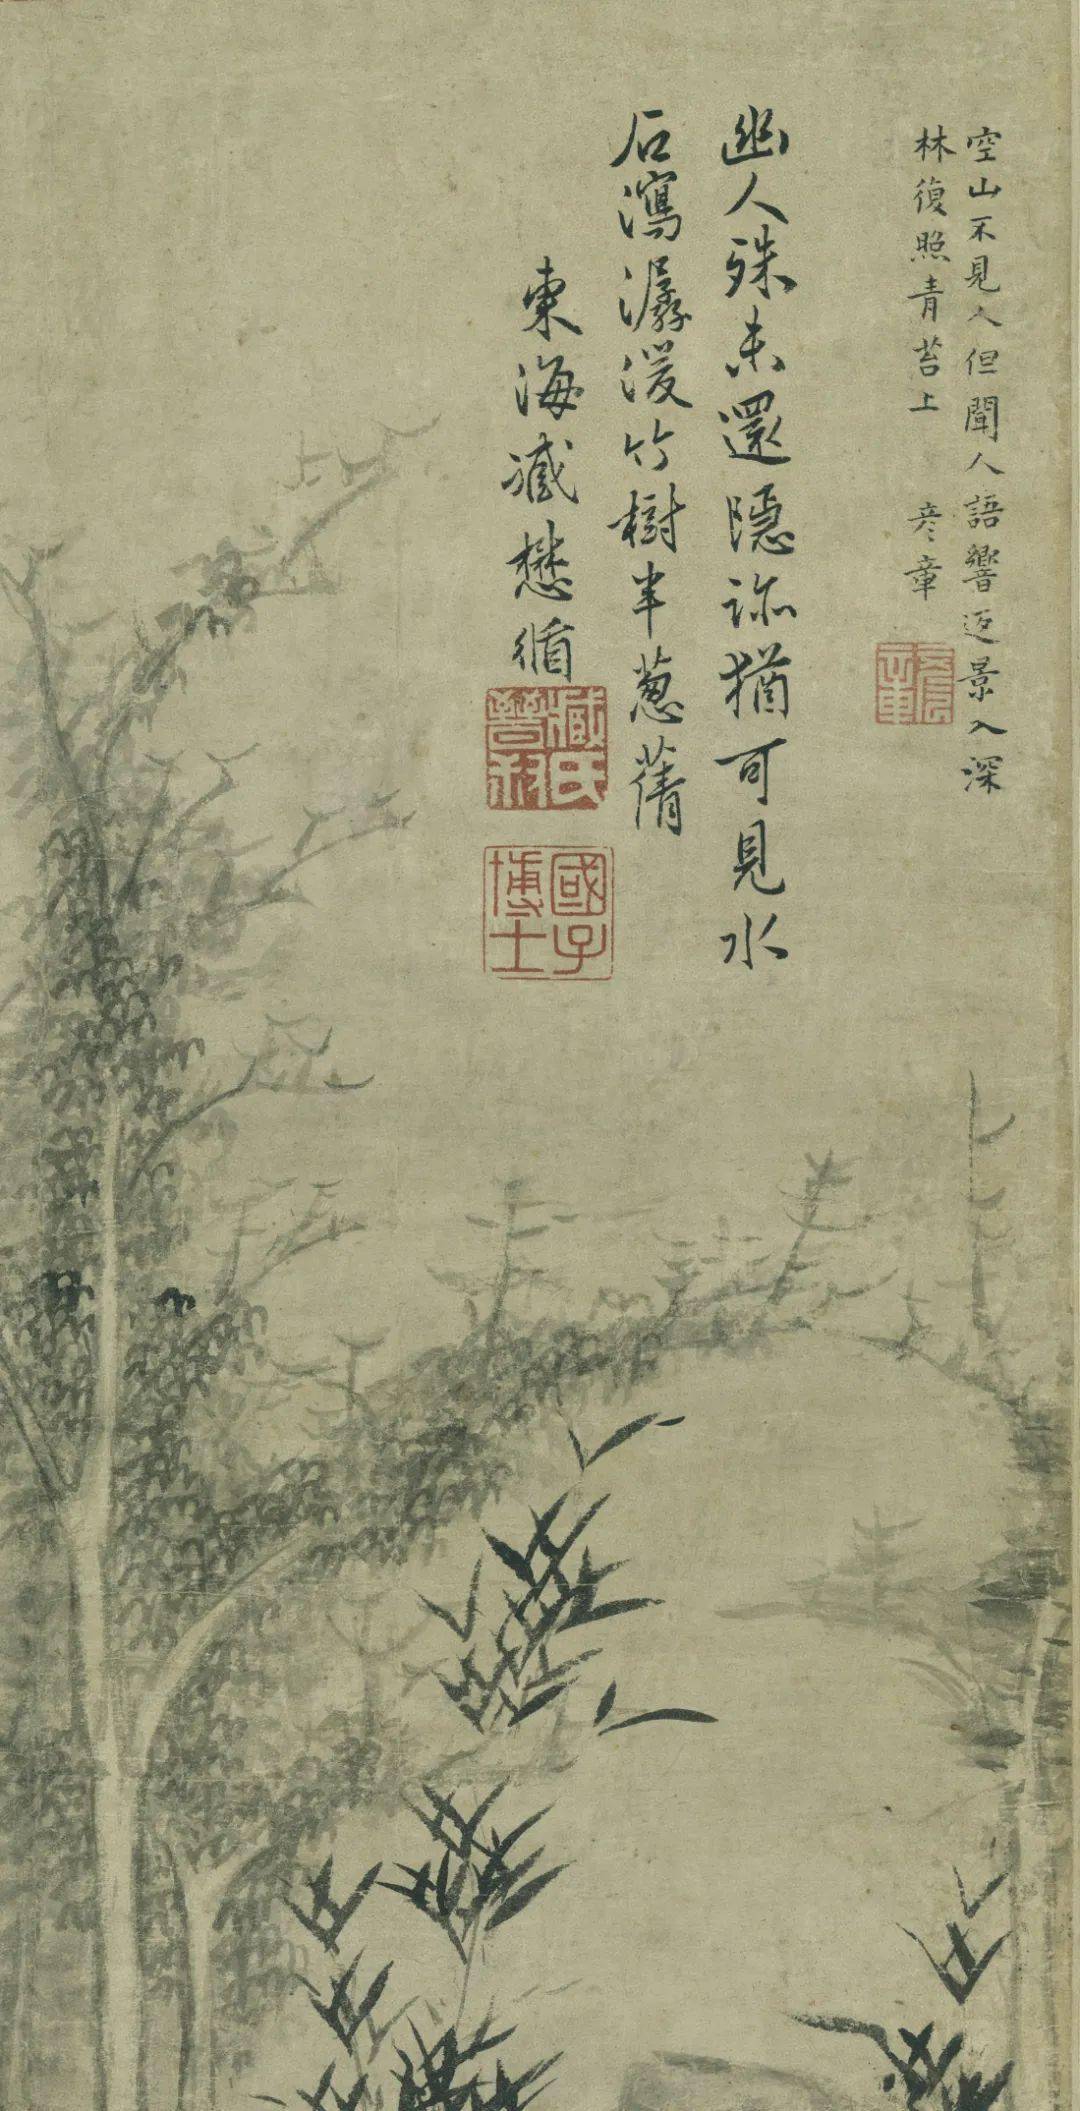 空山不見人但聞人語響返景入深
林復照青苔上 彦章
幽人殊未還隱跡猶可見水
石瀉潺湲竹樹半葱蒨
東海臧懋循
臧氏晉叔
國子博士